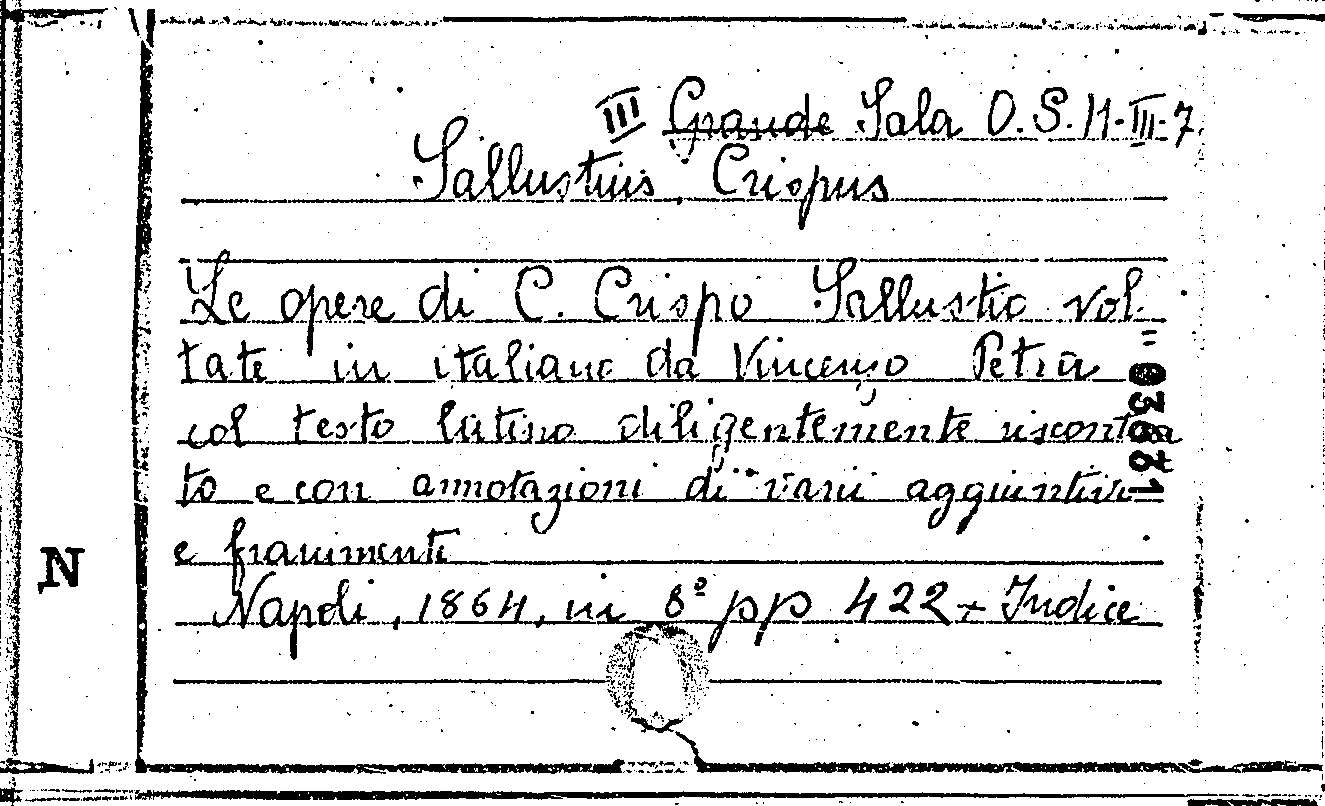 III Grande Sala O.S. 11-III-7
Sallustius Crispus
Le opere di C. Crispo Sallustio vol-
tate in italiano da Vincenzo Petra
col testo latino diligentemente riscontra
to e con annotazioni di varii aggiuntivi
e frammenti
Napoli, 1864, in 8º pp 422 + Indice
N